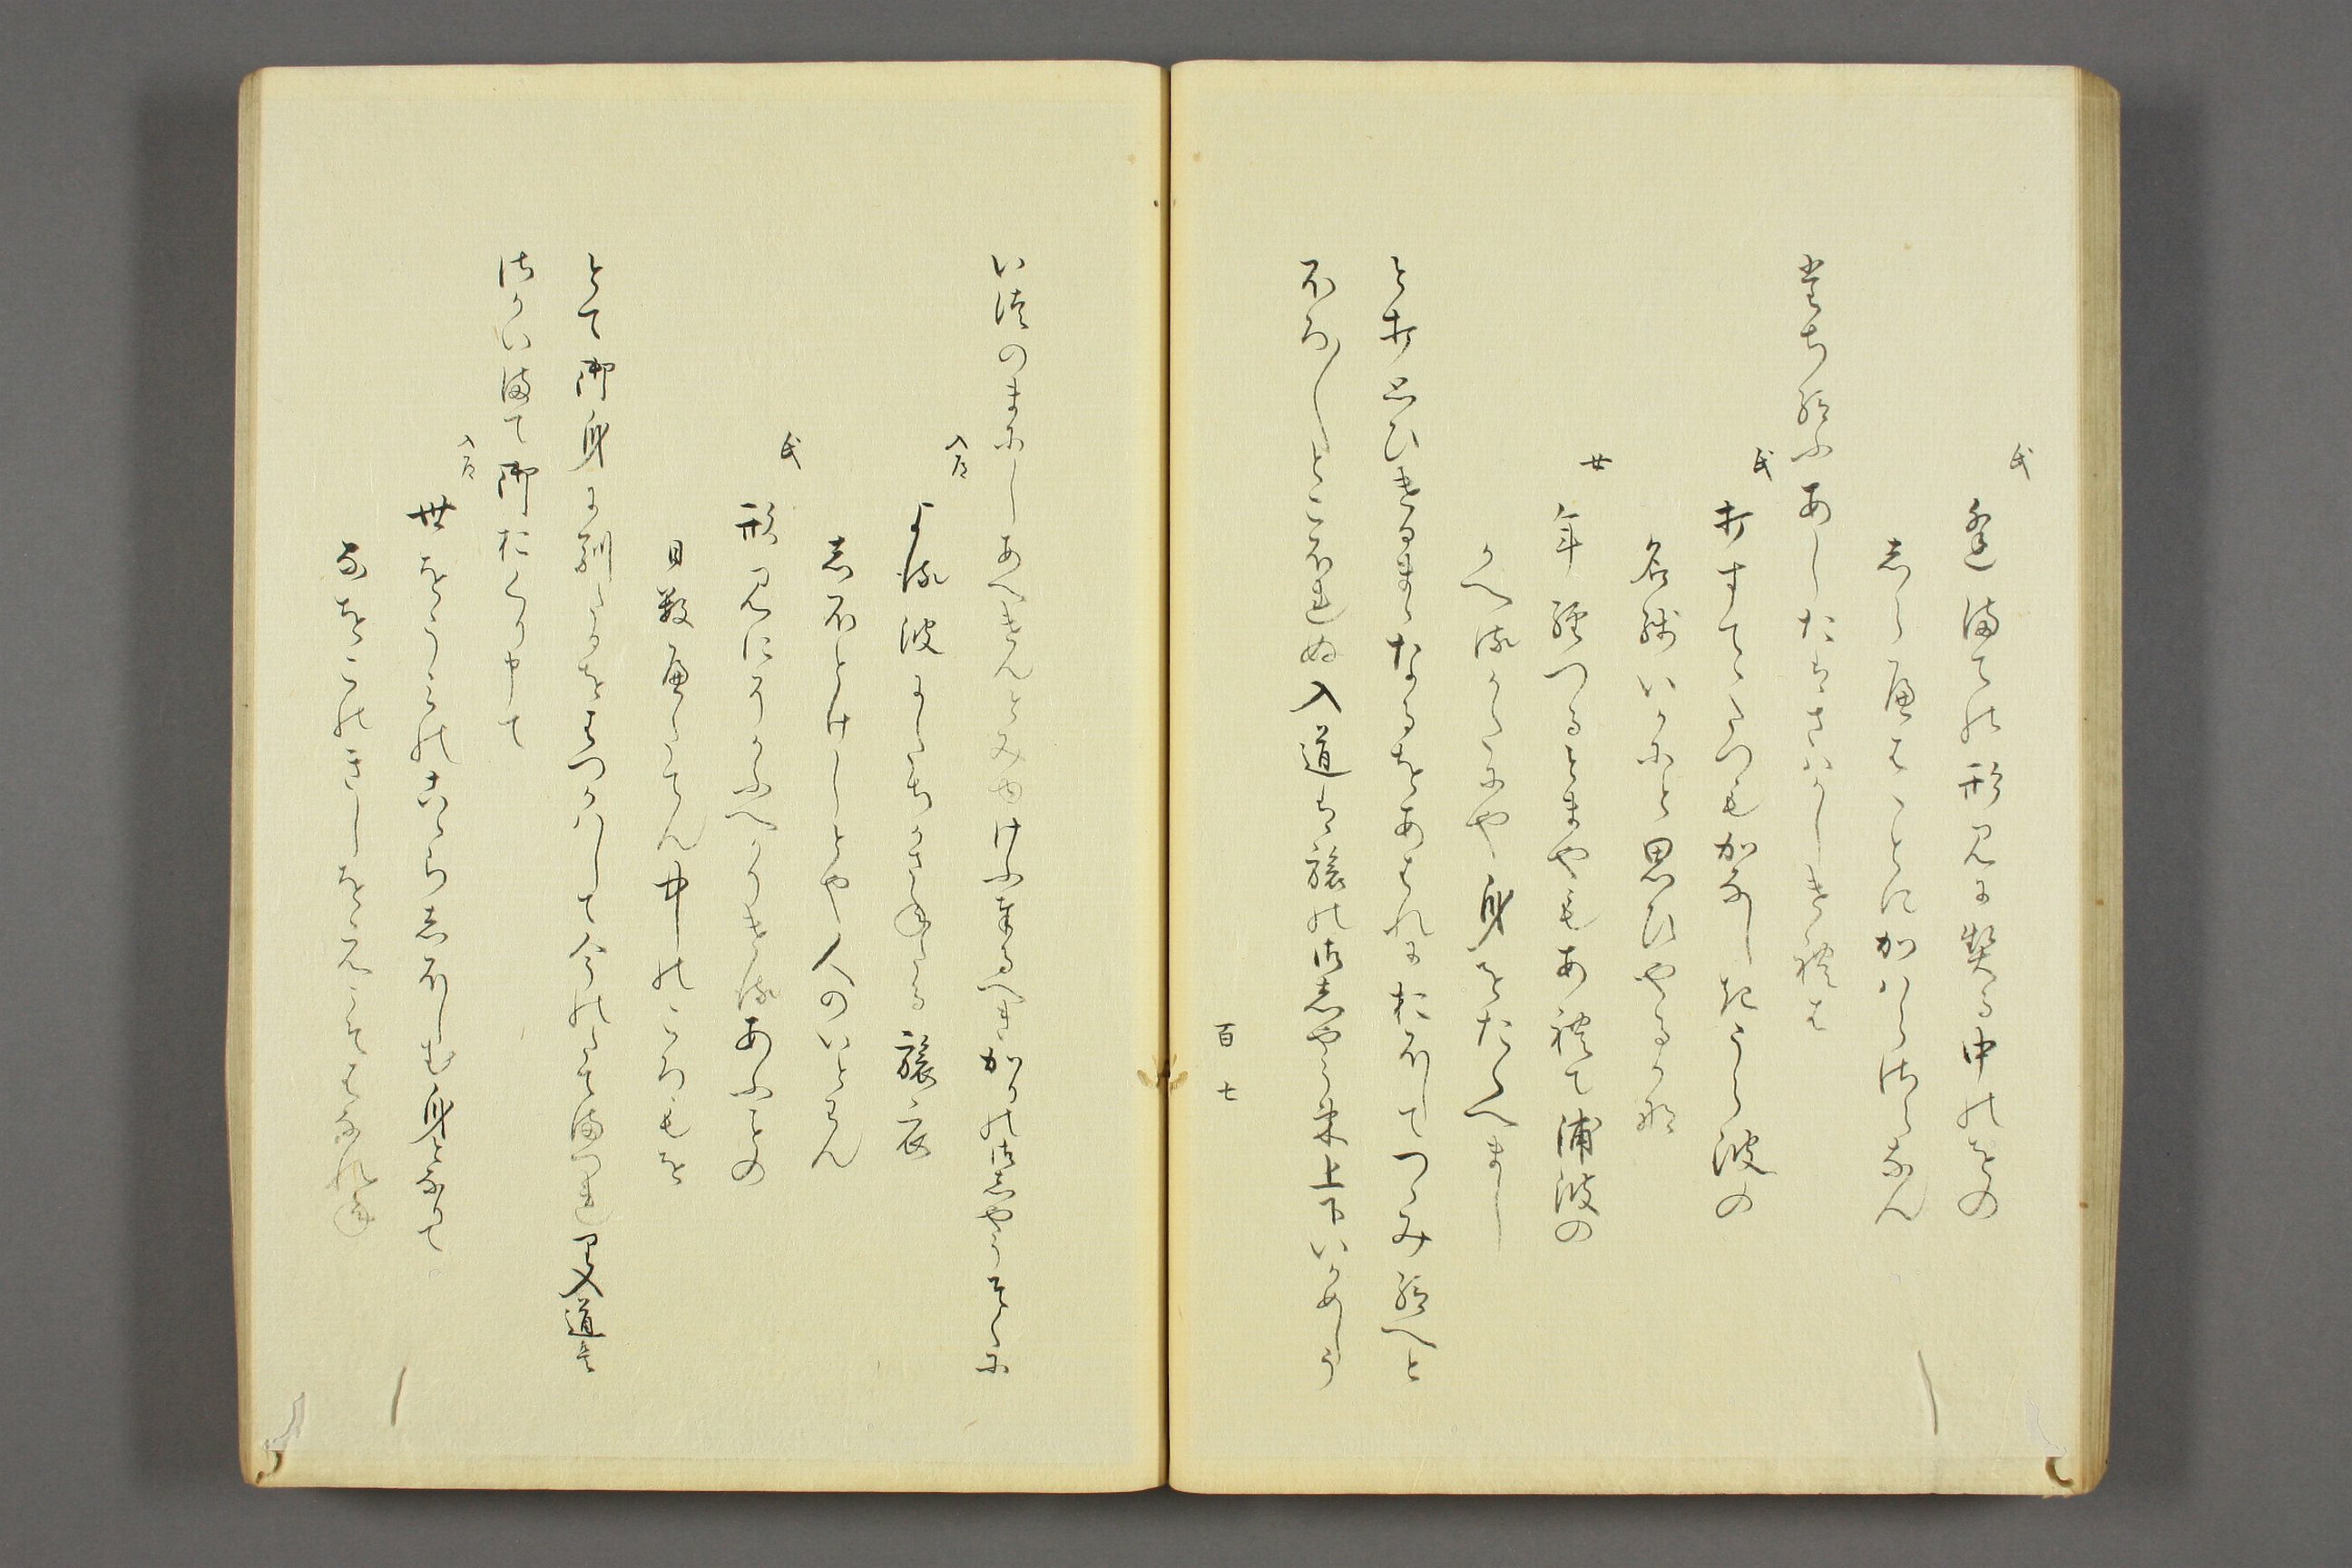 氏
逢まての形見に契る中のをの
しらへはことにかはらさらなん
たち給ふあしたはさはかしけれは
氏
打すてゝたつもかなしきうら波の
名残いかにと思ひやるかな
女
年経つるとまやもあれて浦波の
かへるかたにや身をたくへまし
と打思ひけるまゝなるをあはれにおほしてつゝみ給へと
ほろ〳〵とこほれぬ入道は旅の御しやうそく上下いかめしう
百七
いつのまにしあへけんとみゆけふ奉るへきかりの御しやうそくに
入道
よる波にたちかさねたる旅衣
しほとけしとや人のいとはん
氏
形見にそかふへかりけるあふことの
日数へたてん中のころもを
とて御身に馴たるをはつかはして今のたてまつれり入道も
さかいまて御おくり申て
入道
世をうみにこゝらしほしむ身と成て
なをこのきしをえこそはなれね